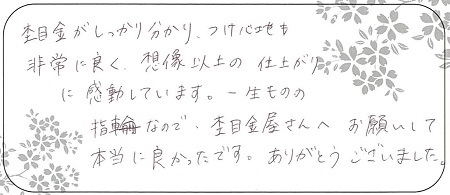 杢目金がしっかり分かり、つけ心地も
非常に良く、想像以上の 仕上がり
に 感動しています。一生ものの
指輪なので、杢目金屋さんへ お願いして
本当に良かったです。ありがとうございました。